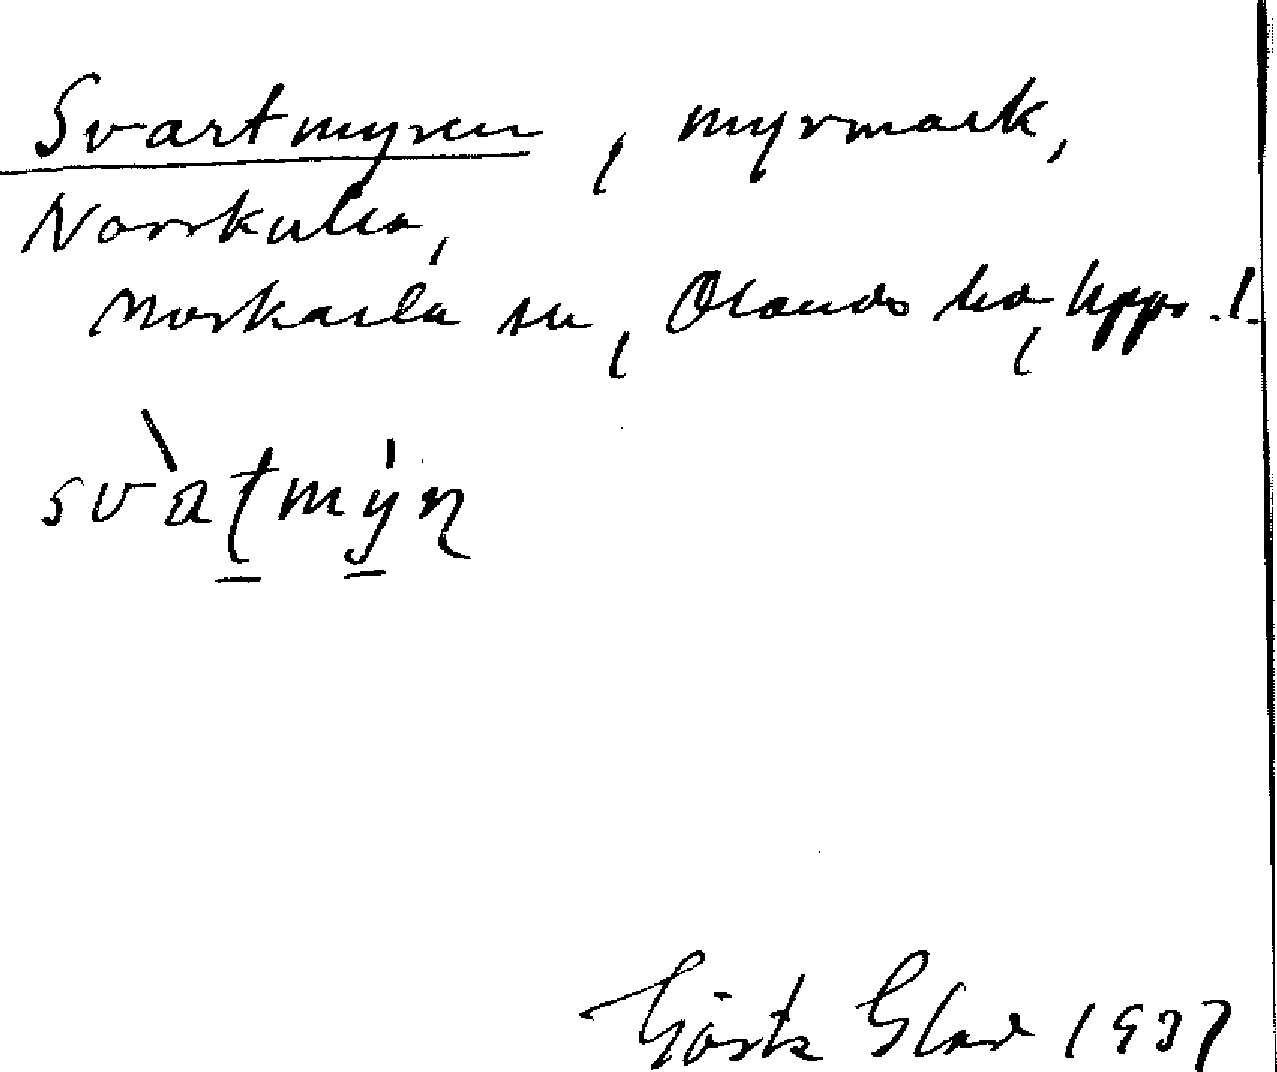 Svartmyren, myrmark,
Norrskedika,
Morkarla sn, Olands hd, Upps. l.
svàṭmýn
Gösta Glad 1937